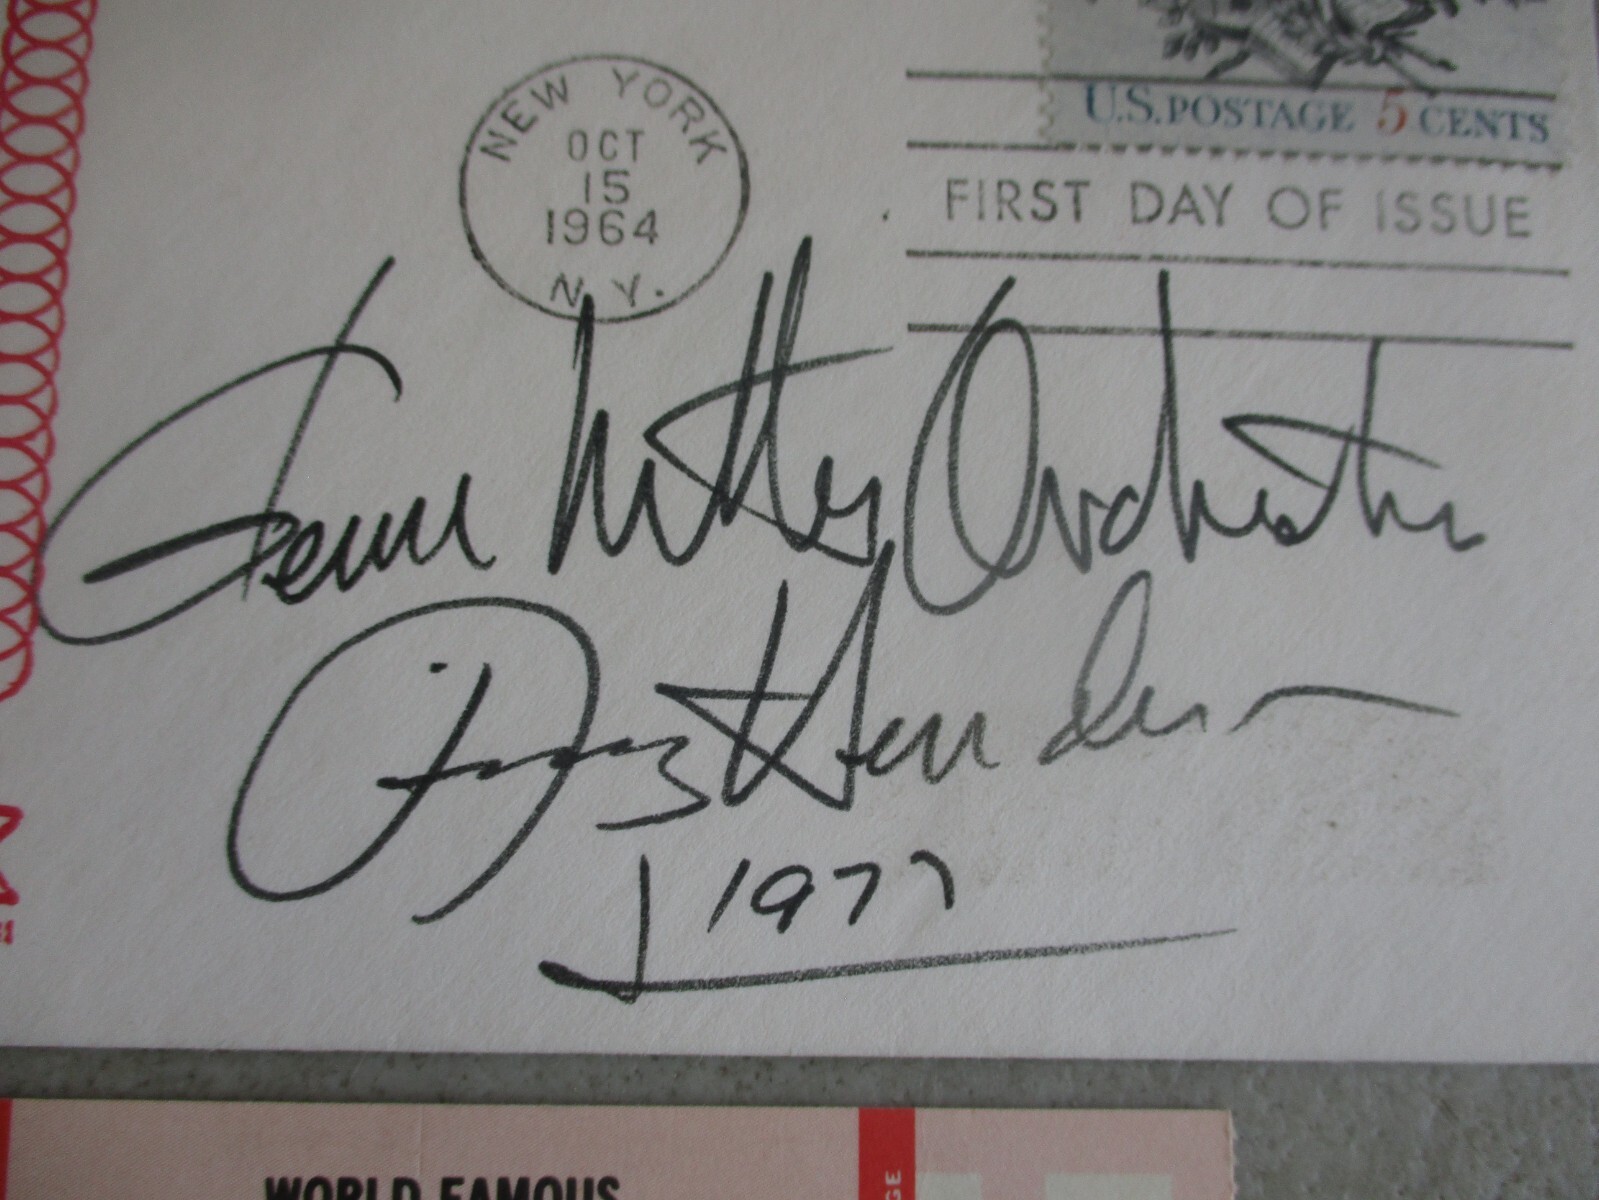 NEW YORK
OCT
15
1964
N.Y.
U.S. POSTAGE 5 CENTS
FIRST DAY OF ISSUE
Glenn Miller Orchestra
Henderson
1977
WORLD FAMOUS